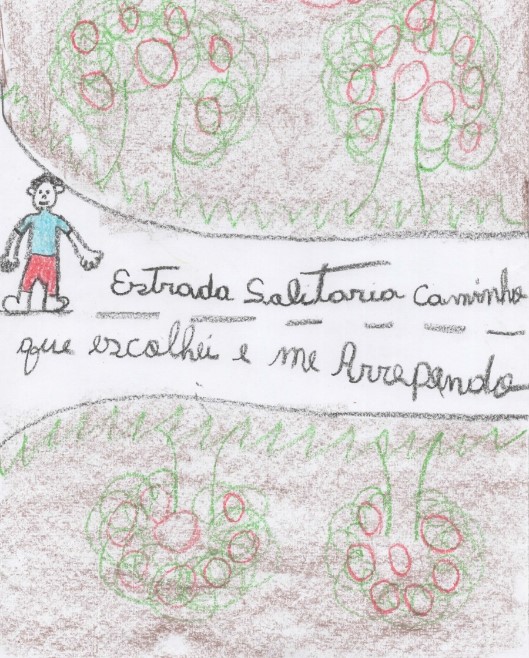 Estrada Salitaria Caminho
que escolhei e me Arrependo